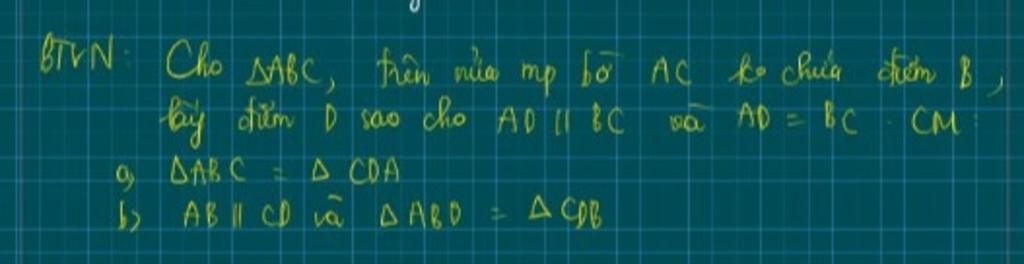 BTVN: Cho ΔABC, trên nửa mp bờ AC ko chứa điểm B,
lấy điểm D sao cho AD // BC và AD = BC. CM:
a, ΔABC = Δ CDA
b, AB // CD và Δ ABD = Δ CDB